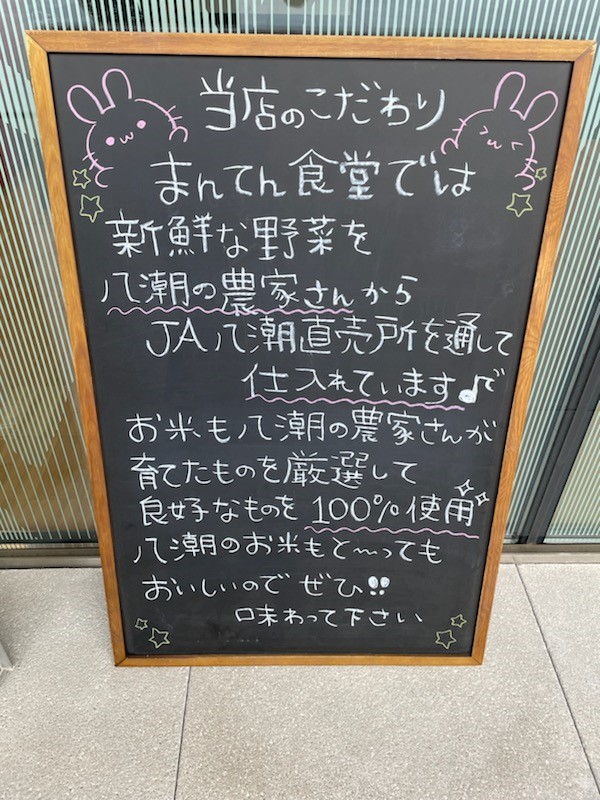 当店のこだわり
まんてん食堂では
新鮮な野菜を
八潮の農家さんから
JA八潮直売所を通して
仕入れています♪
お米も八潮の農家さんが
育てたものを厳選して
良好なものを100%使用
八潮のお米もと〜っても
おいしいのでぜひ!!
味わって下さい